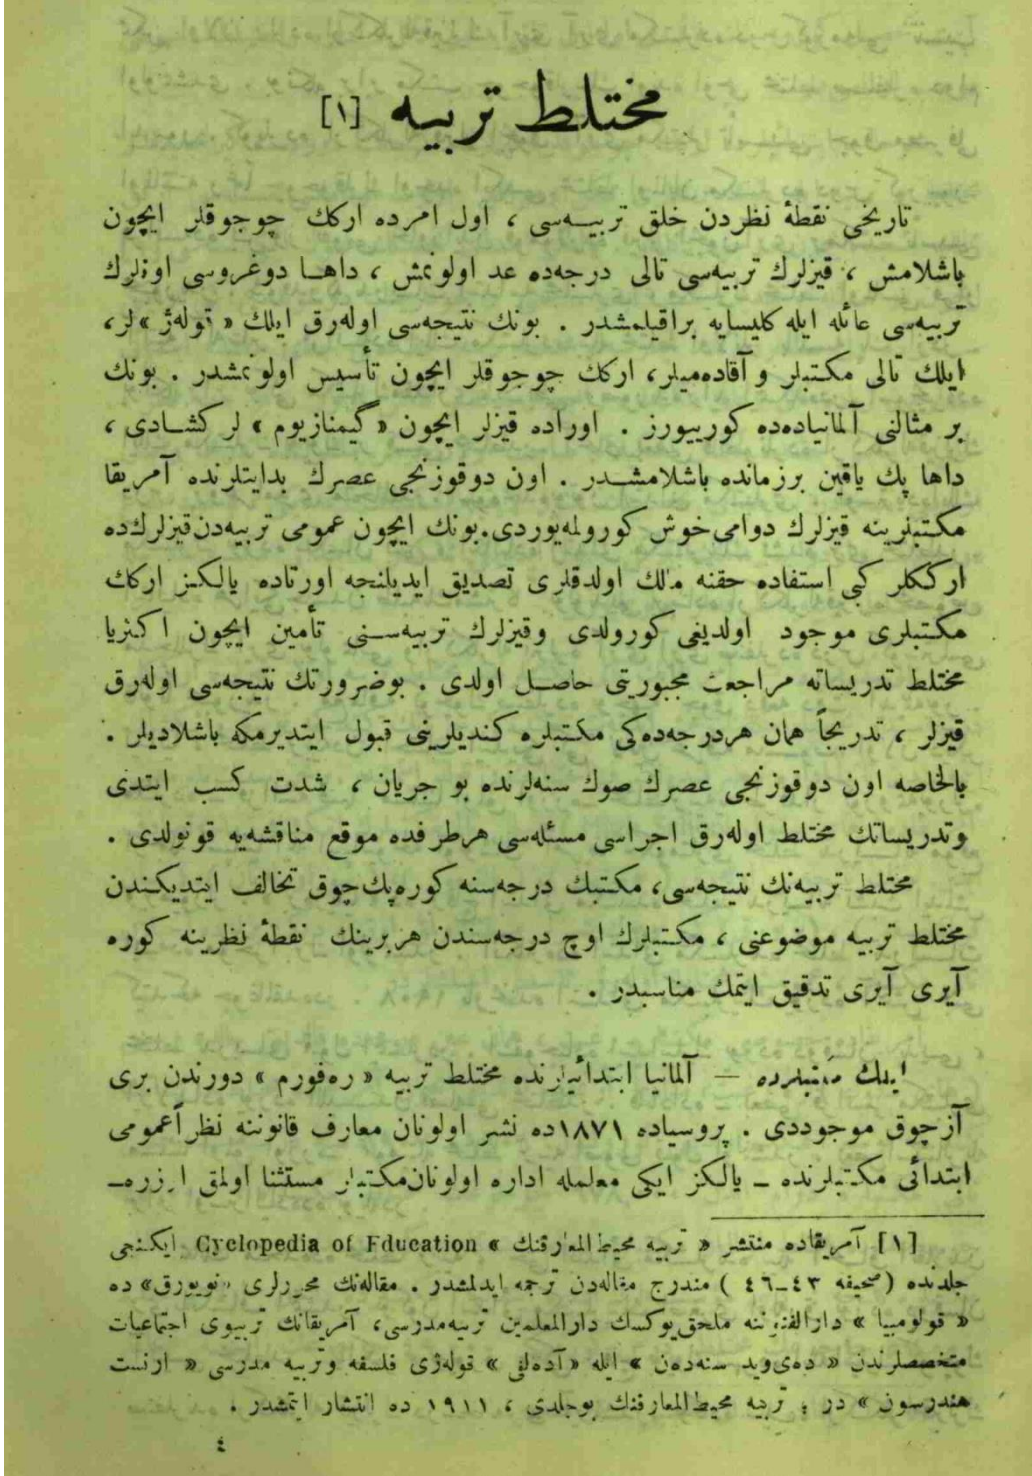 مختلط تربيه [١]
تاريخى نقطۀ نظردن خلق تربيــه‌سى ، اول امرده اركك چوجوقلر ايچون
باشلامش ، قيزلرك تربيه‌سى تالى درجه‌ده عد اولونمش ، داهــا دوغروسى اونلرك
تربيه‌سى عائله ايله كليسايه براقيلمشدر . بونك نتيجه‌سى اوله‌رق ايلك « قوله‌ژ »لر،
ايلك تالى مكتبلر و آقاده‌ميلر، اركك چوجوقلر ايچون تأسيس اولونمشدر . بونك
بر مثالنى آلمانياده‌ده كورييورز . اوراده قيزلر ايچون « گيمنازيوم » لر كشــادى ،
داها پك ياقين برزمانده باشلامشــدر . اون دوقوزنجى عصرك بدايتلرنده آمريقا
مكتبلرينه قيزلرك دوامى خوش كورولمه‌يوردى. بونك ايچون عمومى تربيه‌دن قيزلرك‌ده
ارككلر كبى استفاده حقنه مالك اولدقلرى تصديق ايديلنجه اورتاده يالكز اركك
مكتبلرى موجود اولديغى كورولدى وقيزلرك تربيه‌ســنى تأمين ايچون اكثريا
مختلط تدريساته مراجعت مجبوريتى حاصــل اولدى . بوضرورتك نتيجه‌سى اوله‌رق
قيزلر ، تدريجاً همان هردرجه‌ده‌كى مكتبلره كنديلرينى قبول ايتديرمكه باشلاديلر .
بالخاصه اون دوقوزنجى عصرك صوك سنه‌لرنده بو جريان ، شدت كسب ايتدى
وتدريساتك مختلط اوله‌رق اجراسى مسئله‌سى هرطرفده موقع مناقشه‌يه قونولدى .
مختلط تربيه‌نك نتيجه‌سى، مكتبك درجه‌سنه كوره‌پك چوق تخالف ايتديكندن
مختلط تربيه موضوعنى ، مكتبلرك اوچ درجه‌سندن هربرينك نقطۀ نظرينه كوره
آيرى آيرى تدقيق ايتمك مناسبدر .
ايلك مكتبلرده — آلمانيا ابتدائيلرنده مختلط تربيه « ره‌فورم » دورندن برى
آزچوق موجوددى . پروسياده ١٨٧١ده نشر اولونان معارف قانوننه نظراً عمومى
ابتدائى مكتبلرنده ــ يالكز ايكى معلمله اداره اولونان مكتبلر مستثنا اولمق اوزره‌ــ
[١] آمريقاده منتشر « تربيه محيط‌المعارفنك » Cyclopedia of Fducation ايكنجى
جلدنده (صحيفه ٤٣ــ٤٦ ) مندرج مقاله‌دن ترجمه ايدلمشدر . مقاله‌نك محررلرى «نويورق» ده
« قولومبيا » دارالفنوننه ملحق يوكسك دارالمعلمين تربيه‌مدرسى، آمريقانك تربيوى اجتماعيات
متخصصلرندن « ده‌ى‌ويد سنه‌دەن » ايله «آده‌لفى » قوله‌ژى فلسفه وتربيه مدرسى « ارنست
هندرسون » در . تربيه محيط‌المعارفنك بوجلدى ، ١٩١١ ده انتشار ايتمشدر .
٤